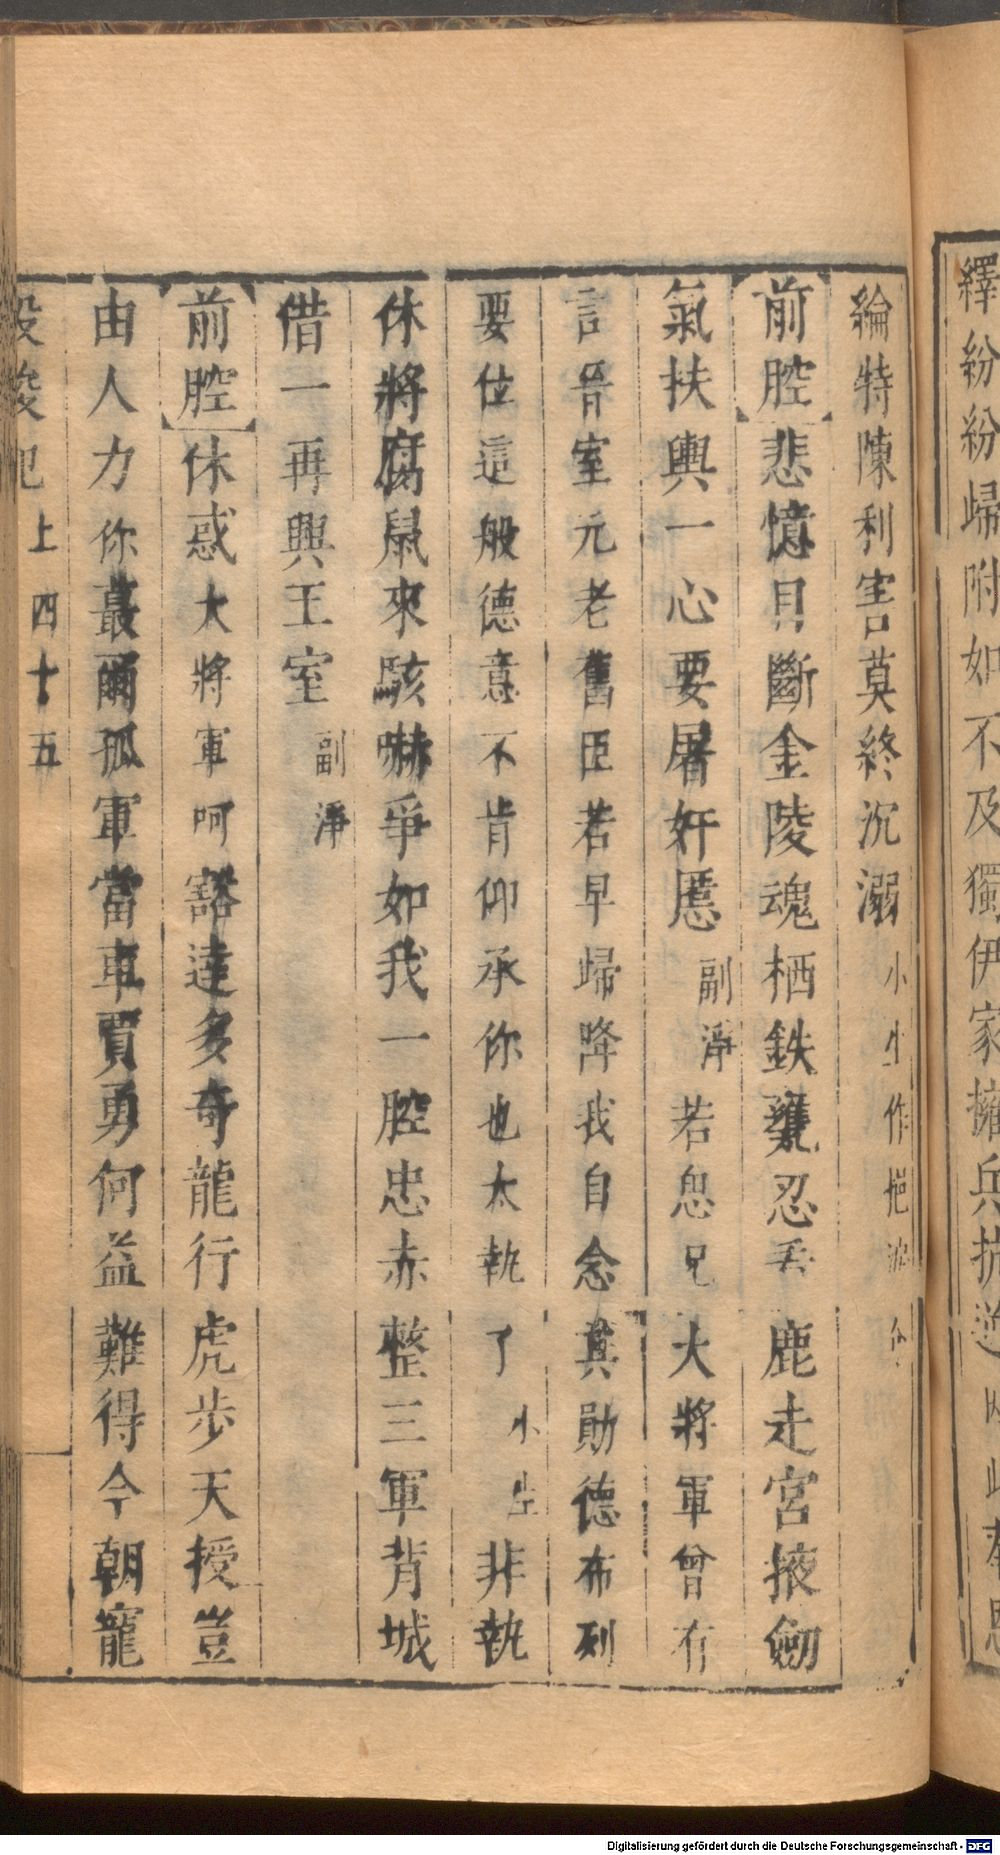 繹紛紛歸附如不及獨伊家擁兵抗逆
綸特陳利害莫終沉溺小生作
前腔悲憶目斷金陵魂栖鉄甕忍 鹿走宮掖劒
氣扶輿一心要屠奸慝副淨若 兄大將軍曾有
言晉室元老舊臣若早歸降我自念其勛德布列
要位這般德意不肯仰承你也太執了小生非執
休將腐鼠來駭嚇爭如我一腔忠赤整三軍背城
借一再興王室副淨
前腔休惑大將軍呵豁達多奇龍行虎步天授豈
由人力你蕞爾孤軍當車賈勇何益難得今朝寵
上四十五
Digitalisierung gefördert durch die Deutsche Forschungsgemeinschaft - DFG